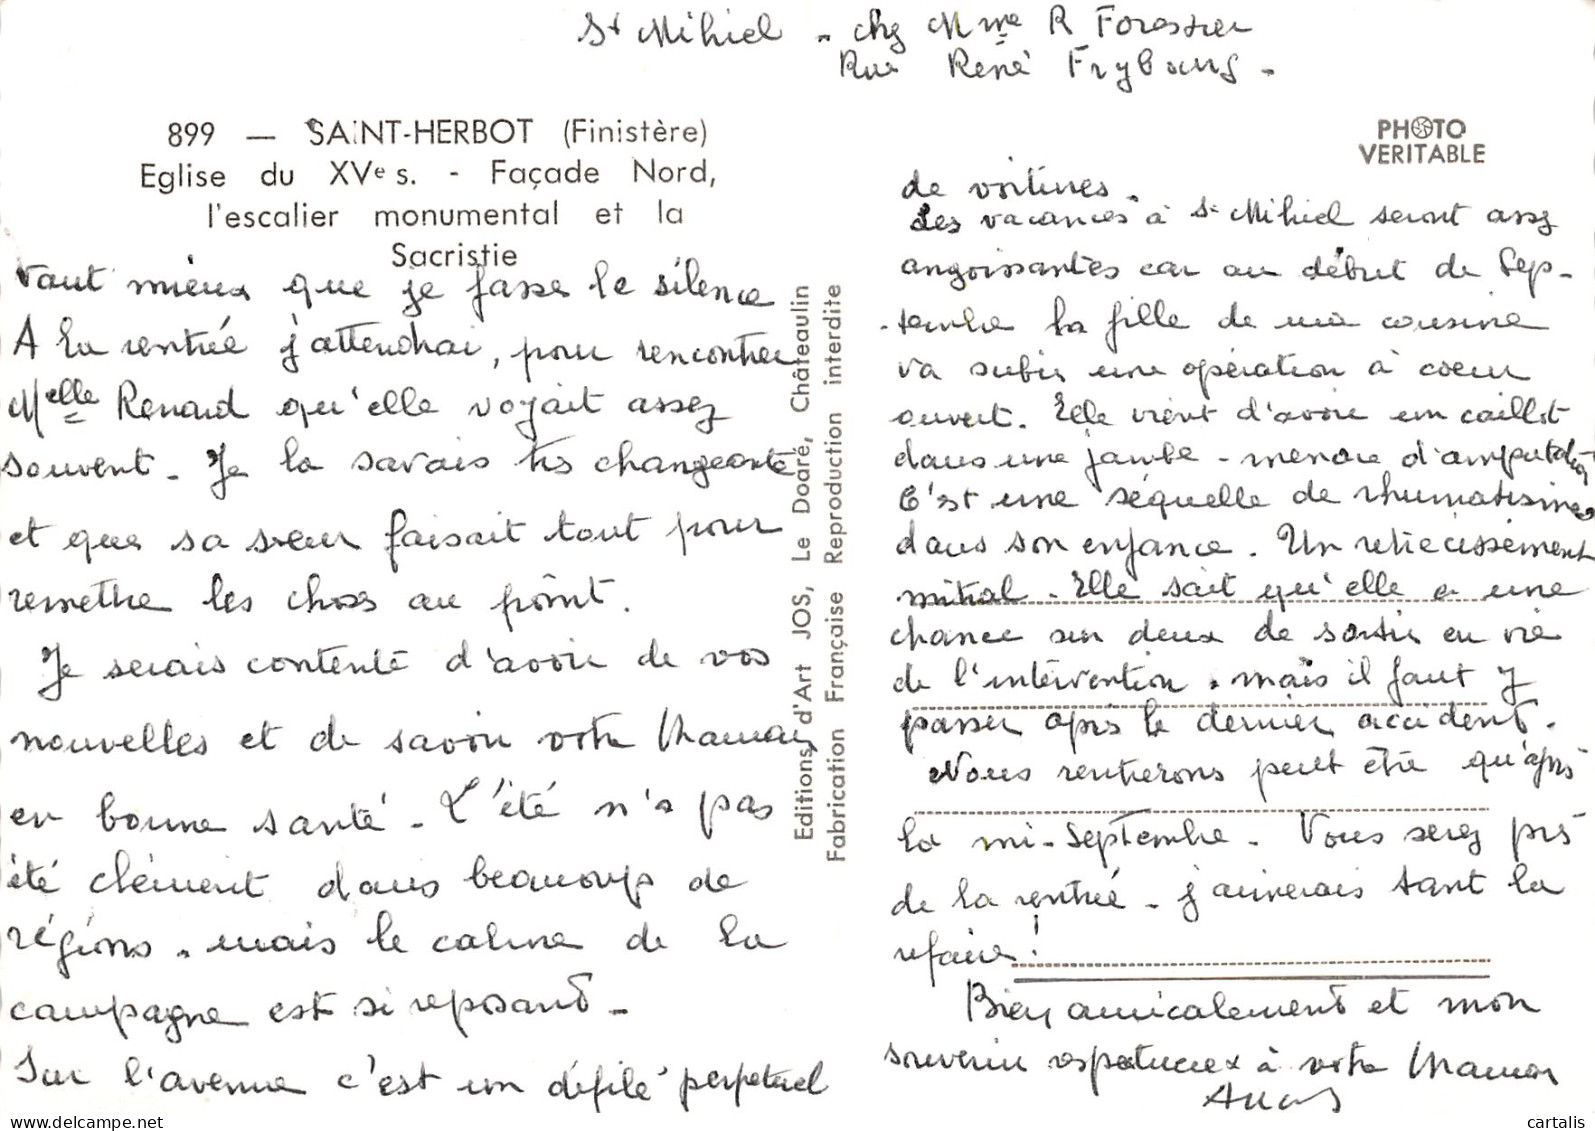 St Mihiel - chez Mme R Forestier
Rue René
899 — SAINT-HERBOT (Finistère)
Eglise du XVe s. - Façade Nord,
l'escalier monumental et la
Sacristie
vaut mieux que je fasse le silence
A la rentrée j'attendrai, pour rencontrer
Melle Renard qu'elle voyait assez
souvent - Je la savais très changeante
et que sa sœur faisait tout pour
remettre les choses au point.
Je serais contente d'avoir de vos
nouvelles et de savoir votre Maman
en bonne santé - L'été n'a pas
été clément dans beaucoup de
régions - mais le calme de la
campagne est si reposant -
Sur l'avenue c'est un défilé perpétuel
Editions d'Art JOS, Le Doaré, Châteaulin
Fabrication Française Reproduction interdite
PHOTO
VERITABLE
de voitures.
Les vacances à St Mihiel seront assez
angoissantes car au début de Sep-
-tembre la fille de ma cousine
va subir une opération à coeur
ouvert. Elle vient d'avoir un caillot
dans une jambe - menace d'amputation
C'est une séquelle de rhumatismes
dans son enfance. Un rétrécissement
mitral - Elle sait qu'elle a une
chance sur deux de sortir en vie
de l'intervention - mais il faut y
passer après le dernier accident.
Nous rentrerons peut être qu'après
la mi-septembre - Vous serez près
de la rentrée - j'aimerais tant la
refaire !
Bien amicalement et mon
souvenir respectueux à votre Maman